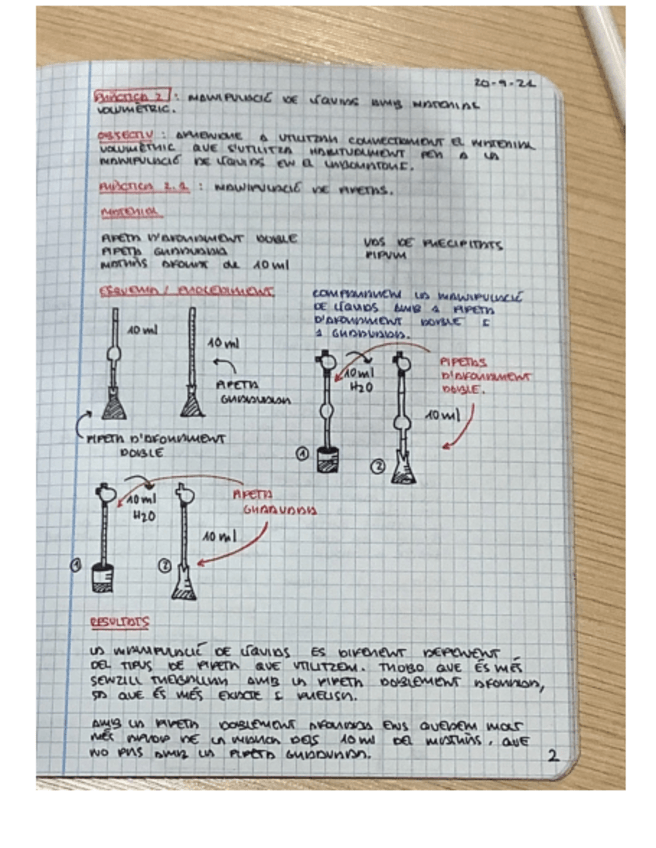 20-9-21
PRÀCTICA 2: MANIPULACIÓ DE LÍQUIDS AMB MATERIAL
VOLUMÈTRIC.
OBJECTIU: APRENDRE A UTILITZAR CORRECTAMENT EL MATERIAL
VOLUMÈTRIC QUE S'UTILITZA HABITUALMENT PER A LA
MANIPULACIÓ DE LÍQUIDS EN EL LABORATORI.
PRÀCTICA 2.1: MANIPULACIÓ DE PIPETES.
MATERIAL
PIPETA D'AFORAMENT DOBLE
PIPETA GRADUADA
MATRÀS AFORAT de 10 ml
VAS DE PRECIPITATS
PIPUM
ESQUEMA / PROCEDIMENT
10 ml
10 ml
PIPETA
GRADUADA
PIPETA D'AFORAMENT
DOBLE
COMPARAREM LA MANIPULACIÓ
DE LÍQUIDS AMB 1 PIPETA
D'AFORAMENT DOBLE I
1 GRADUADA.
10 ml
H2O
PIPETES
D'AFORAMENT
DOBLE.
10 ml
1
2
10 ml
H2O
PIPETA
GRADUADA
10 ml
1
2
RESULTATS
LA MANIPULACIÓ DE LÍQUIDS ES DIFERENT DEPENENT
DEL TIPUS DE PIPETA QUE UTILITZEM. TROBO QUE ÉS MÉS
SENZILL TREBALLAR AMB LA PIPETA DOBLEMENT AFORADA,
JA QUE ÉS MÉS EXACTE I PRECISA.
AMB LA PIPETA DOBLEMENT AFORADA ENS QUEDEM MOLT
MÉS APROP DE LA MARCA DELS 10 ml DEL MATRÀS, QUE
NO PAS AMB LA PIPETA GRADUADA.
2